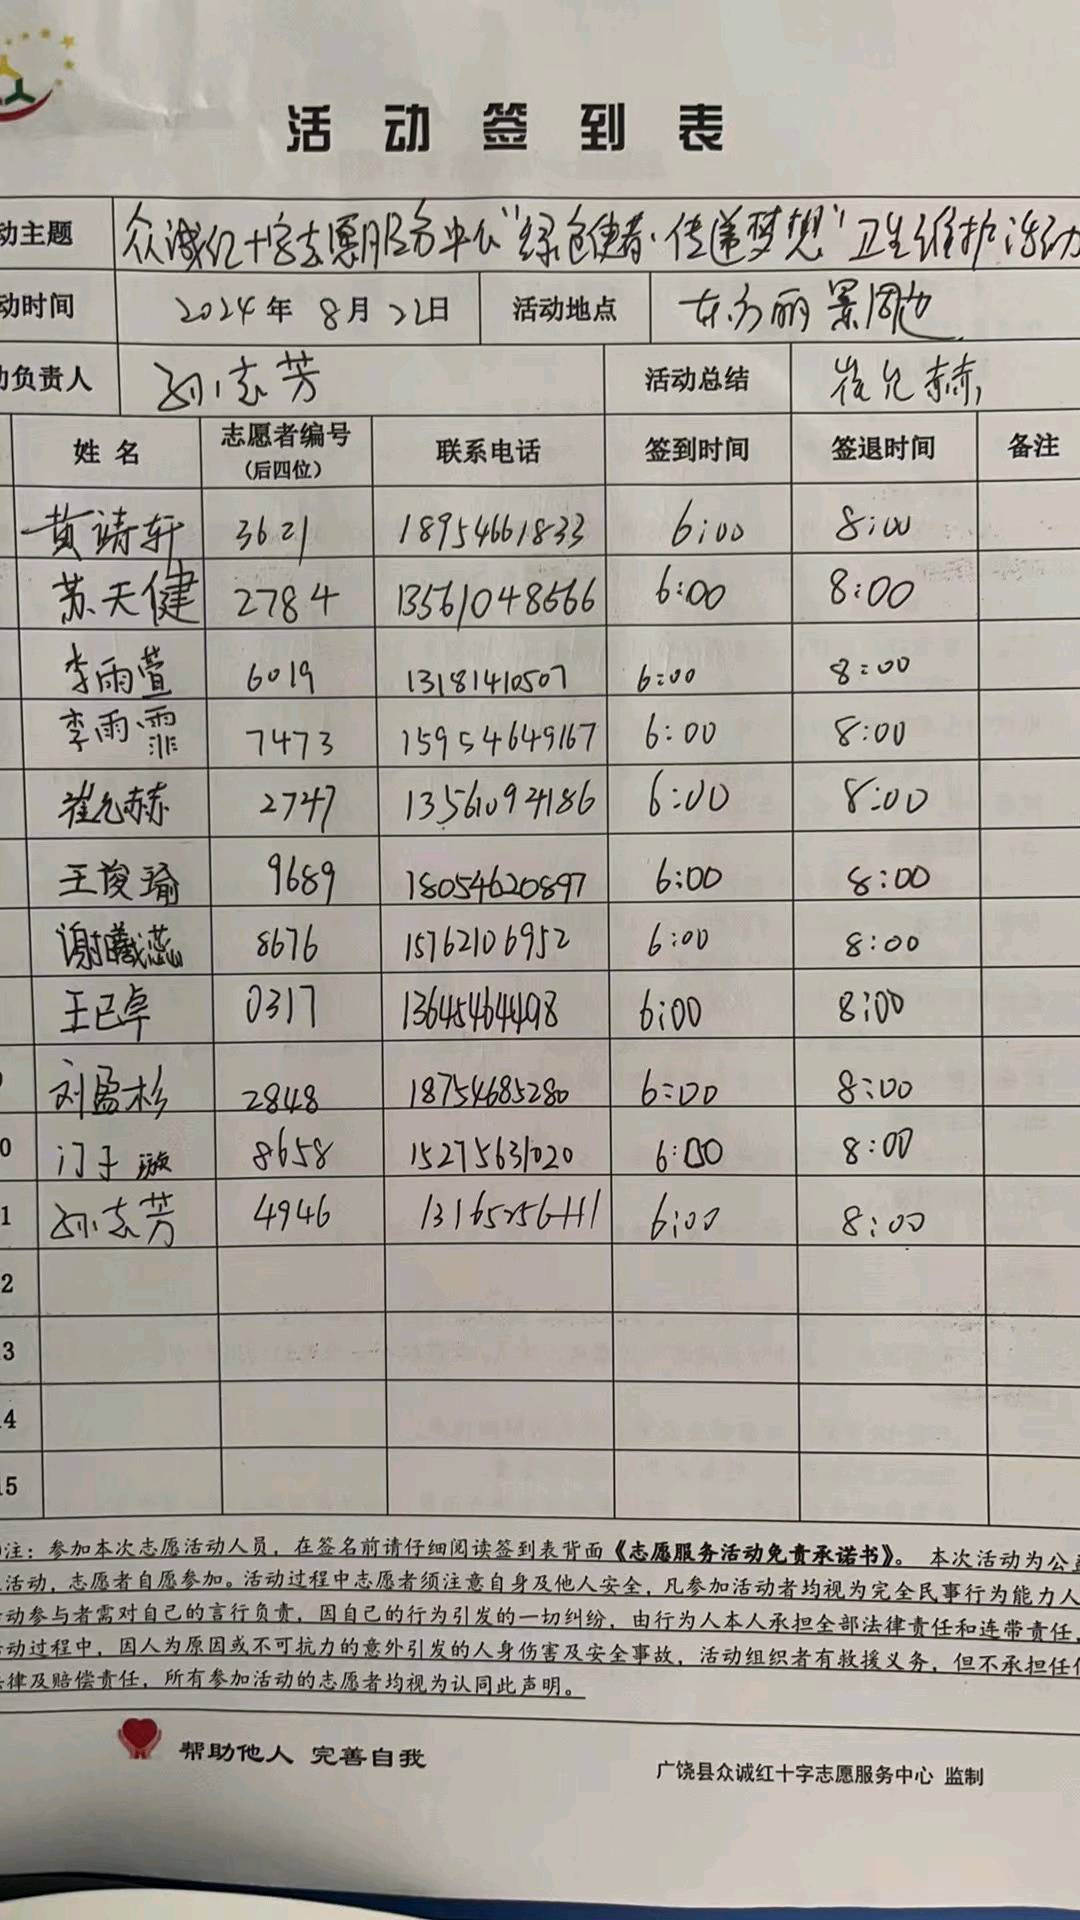 活动签到表
动主题 众诚红十字志愿服务中心“绿色使者·传递梦想”卫生维护活动
动时间 2024年8月22日 活动地点 东方丽景周边
负责人 孙志芳 活动总结 崔允赫
姓名 志愿者编号(后四位) 联系电话 签到时间 签退时间 备注
黄靖轩 3621 18954661833 6:00 8:00
苏天健 2784 13561048666 6:00 8:00
李雨萱 6019 13181410507 6:00 8:00
李雨霏 7473 15954649167 6:00 8:00
崔允赫 2747 13561094186 6:00 8:00
王俊瑜 9689 18054620897 6:00 8:00
谢曦蕊 8676 15762106952 6:00 8:00
王已卓 0317 13645464498 6:00 8:00
刘盈杉 2848 18754685280 6:00 8:00
0 门子璇 8658 15275631020 6:00 8:00
1 孙志芳 4946 6:00 8:00
2
3
4
15
注：参加本次志愿活动人员，在签名前请仔细阅读签到表背面《志愿服务活动免责承诺书》。本次活动为公益
活动，志愿者自愿参加。活动过程中志愿者须注意自身及他人安全，凡参加活动者均视为完全民事行为能力人
动参与者需对自己的言行负责，因自己的行为引发的一切纠纷，由行为人本人承担全部法律责任和连带责任，
动过程中，因人为原因或不可抗力的意外引发的人身伤害及安全事故，活动组织者有救援义务，但不承担任何
律及赔偿责任，所有参加活动的志愿者均视为认同此声明。
帮助他人 完善自我
广饶县众诚红十字志愿服务中心 监制